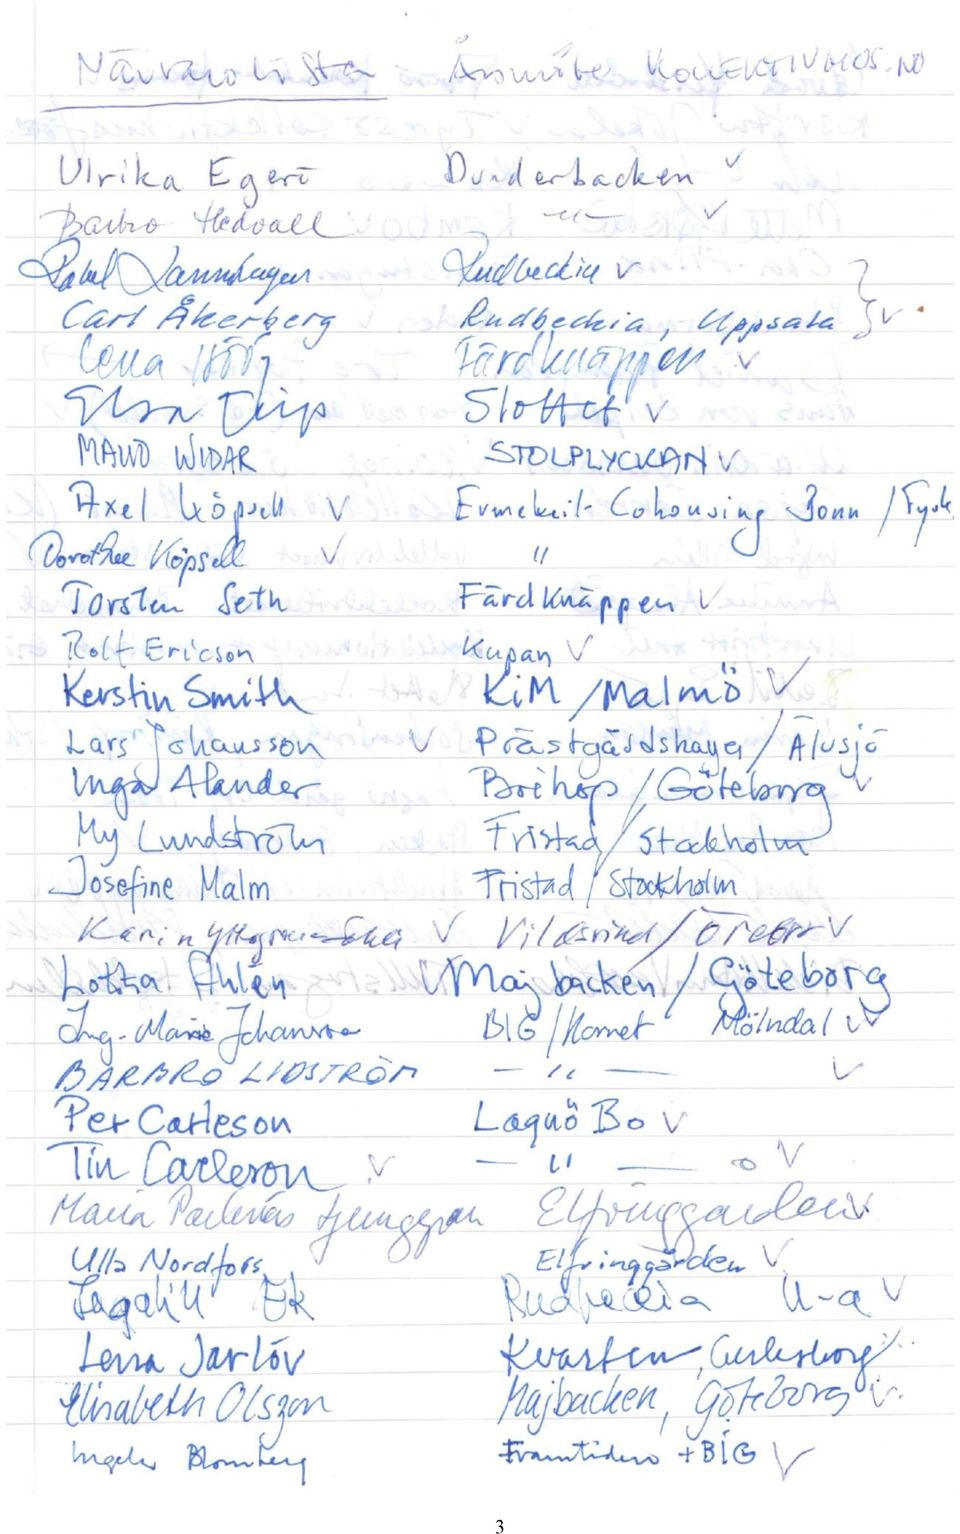 Närvarolista Årsmöte KOLLEKTIVHUS.NU
Ulrika Egerö Dunderbacken ✓
Barbro Hedvall –"– ✓
Rudbeckia ✓
Carl Åkerberg Rudbeckia, Uppsala ✓
Lena Höög Färdknäppen ✓
Elsa Slottet ✓
MAUD WIDAR STOLPLYCKAN ✓
Axel Köpsell ✓ Ermekeil- Cohousing Bonn / Tysk
Dorothee Köpsell ✓ "
Torsten Seth Färdknäppen ✓
Rolf Ericson Kupan ✓
Kerstin Smith KiM / Malmö ✓
Lars Johansson ✓ Prästgårdshagen / Älvsjö
Inga Alander Boihop / Göteborg ✓
My Lundström Fristad / Stockholm
Josefine Malm Fristad / Stockholm
Karin ✓ Vildsvind / Örebro ✓
Lotta Ahlén ✓ Majbacken / Göteborg
Ing-Marie Johansson BIG / Kornet Mölndal ✓
BARBRO LIDSTRÖM –"– ✓
Per Carleson Lagnö Bo ✓
Tin Carleson ✓ –"– ✓
Maria Ljunggren Elfringgården ✓
Ulla Nordfors Elfringgården ✓
Ingalill Ek Rudbeckia U-a ✓
Lena Jarlöv Kvarten
Elisabeth Olszon Majbacken, Göteborg ✓
Ingela Blomberg Framtiden + BiG ✓
3